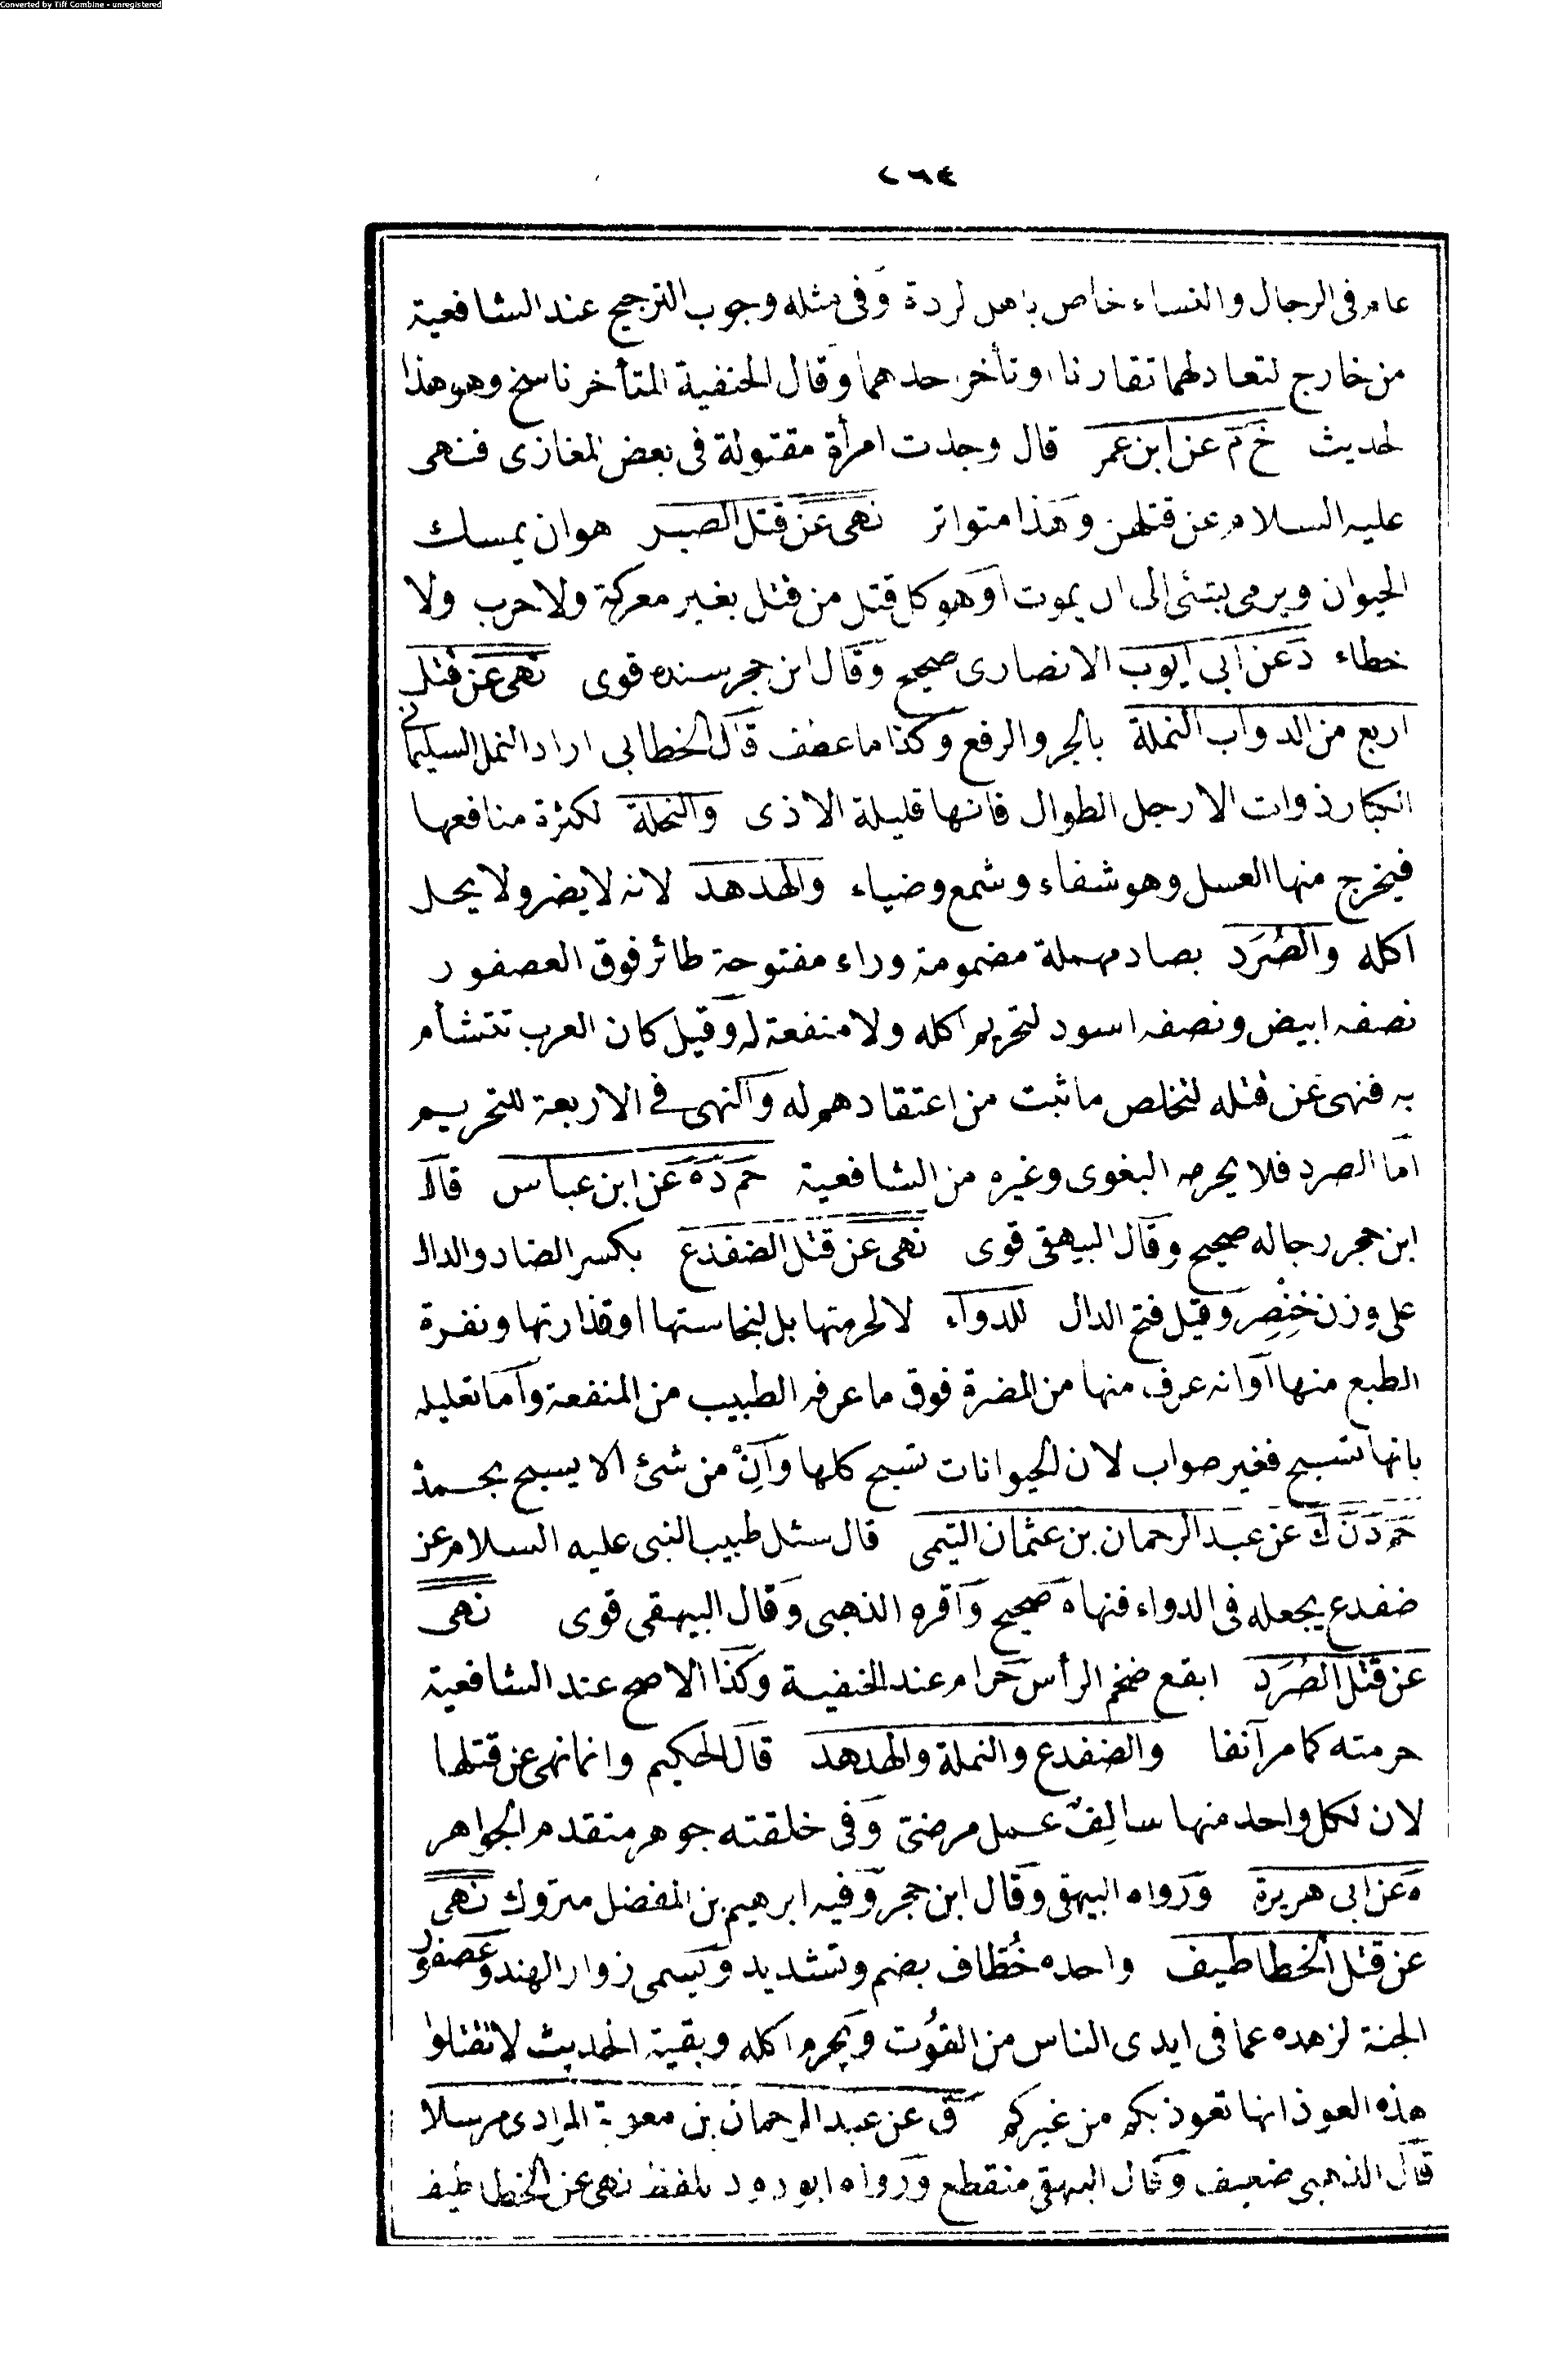 Converted by Tiff Combine - unregistered
٢٦٤
عام فى الرجال والنساء خاص باهل لردة وفى مثله وجوب الترجيح عند الشافعية
من خارج لتعادلهما تقارنا او تأخر احدهما وقال الحنفية المتأخر ناسخ وهو هذا
لحديث خ م عن ابن عمر قال وجدت امرأة مقتولة فى بعض المغازى فنهى
عليه السلام عن قتلهن وهذا متواتر نهى عن قتل الصبر هو ان يمسك
الحيوان ويرمى بشئ الى ان يموت او هو كل قتل من قتل بغير معركة ولا حرب ولا
خطاء د عن ابى ايوب الانصارى صحيح وقال ابن حجر سنده قوى نهى عن قتل
اربع من الدواب النملة بالجر والرفع وكذا ما عطف قال الخطابى اراد النمل السليمانى
الكبار ذوات الارجل الطوال فانها قليلة الاذى والنحلة لكثرة منافعها
فيخرج منها العسل وهو شفاء وشمع وضياء والهدهد لانه لا يضر ولا يحل
اكله والصُرَد بصاد مهملة مضمومة وراء مفتوحة طائر فوق العصفور
نصفه ابيض ونصفه اسود لتحريم اكله ولا منفعة له وقيل كان العرب تتشأم
به فنهى عن قتله لتخلص ما ثبت من اعتقادهم له والنهى فى الاربعة للتحريم
اما الصرد فلا يحرمه البغوى وغيره من الشافعية حم د ه عن ابن عباس قال
ابن حجر رجاله صحيح وقال البيهقى قوى نهى عن قتل الضفدع بكسر الضاد والدال
على وزن خِنْصِر وقيل فتح الدال للدواء لا لحرمتها بل لنجاستها او قذارتها ونفرة
الطبع منها او انه عرف منها من المضرة فوق ما عرفه الطبيب من المنفعة واما تعليله
بانها تسبح فغير صواب لان الحيوانات تسبح كلها وَاِنْ من شئ الا يسبح بحمده
حم د ن ك عن عبد الرحمان بن عثمان التيمى قال سئل طبيب النبى عليه السلام عن
ضفدع يجعله فى الدواء فنهاه صحيح واقره الذهبى وقال البيهقى قوى نهى
عن قتل الصُرَد ابقع ضخم الرأس حرام عند الحنفية وكذا الاصح عند الشافعية
حرمته كما مر آنفا والضفدع والنملة والهدهد قال الحكيم وانما نهى عن قتلها
لان لكل واحد منها سالِفَ عمل مرضىّ وفى خلقته جوهر متقدم الجواهر
ه عن ابى هريرة ورواه البيهقى وقال ابن حجر وفيه ابرهيم بن المفضل متروك نهى
عن قتل الخطاطيف واحده خُطّاف بضم وتشديد ويسمى زوار الهند وعصفور
الجنة لزهده عما فى ايدى الناس من القُوت ويحرم اكله وبقية الحديث لا تقتلوا
هذه العوذ انها تعوذ بكم من غيركم ق عن عبد الرحمان بن معوية المرادى مرسلا
قال الذهبى ضعيف وقال البيهقى منقطع ورواه ابو دود بلفظ نهى عن الخطاطيف